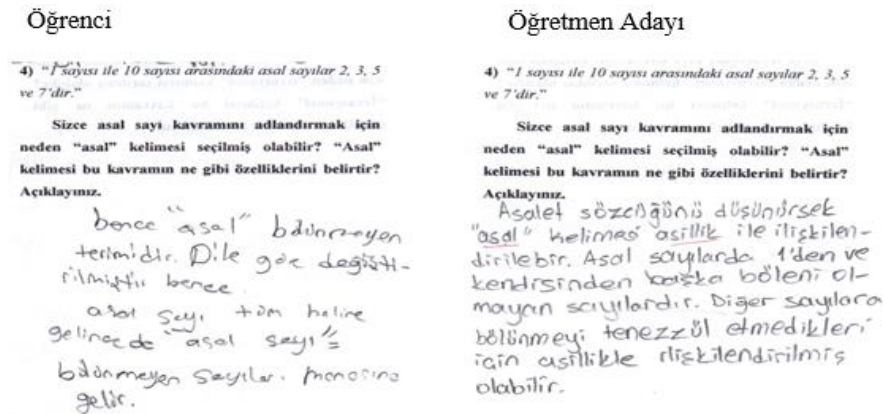 Öğrenci
4) "1 sayısı ile 10 sayısı arasındaki asal sayılar 2, 3, 5
ve 7'dir."
Sizce asal sayı kavramını adlandırmak için
neden "asal" kelimesi seçilmiş olabilir? "Asal"
kelimesi bu kavramın ne gibi özelliklerini belirtir?
Açıklayınız.
bence "asal" bölünmeyen
terimidir. Dile göre değişti-
rilmiştir bence.
asal sayı tüm haline
gelince de "asal sayı" =
bölünmeyen sayılar. manasına
gelir.
Öğretmen Adayı
4) "1 sayısı ile 10 sayısı arasındaki asal sayılar 2, 3, 5
ve 7'dir."
Sizce asal sayı kavramını adlandırmak için
neden "asal" kelimesi seçilmiş olabilir? "Asal"
kelimesi bu kavramın ne gibi özelliklerini belirtir?
Açıklayınız.
Asalet sözcüğünü düşünürsek
"asal" kelimesi asillik ile ilişkilen-
dirilebir. Asal sayılarda 1'den ve
kendisinden başka böleni ol-
mayan sayılardır. Diğer sayılara
bölünmeyi tenezzül etmedikleri
için asillikle ilişkilendirilmiş
olabilir.